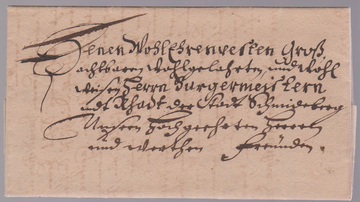 Denen WohlEhrenvesten Groß
Achtbaren Wohlgelahrten, und Wohl
Weisen Herrn Bürgermeistern
undt Rhadt der Stadt Schmiedeberg
Unsern Hochgeehrten Herren
und werthen Freunden.